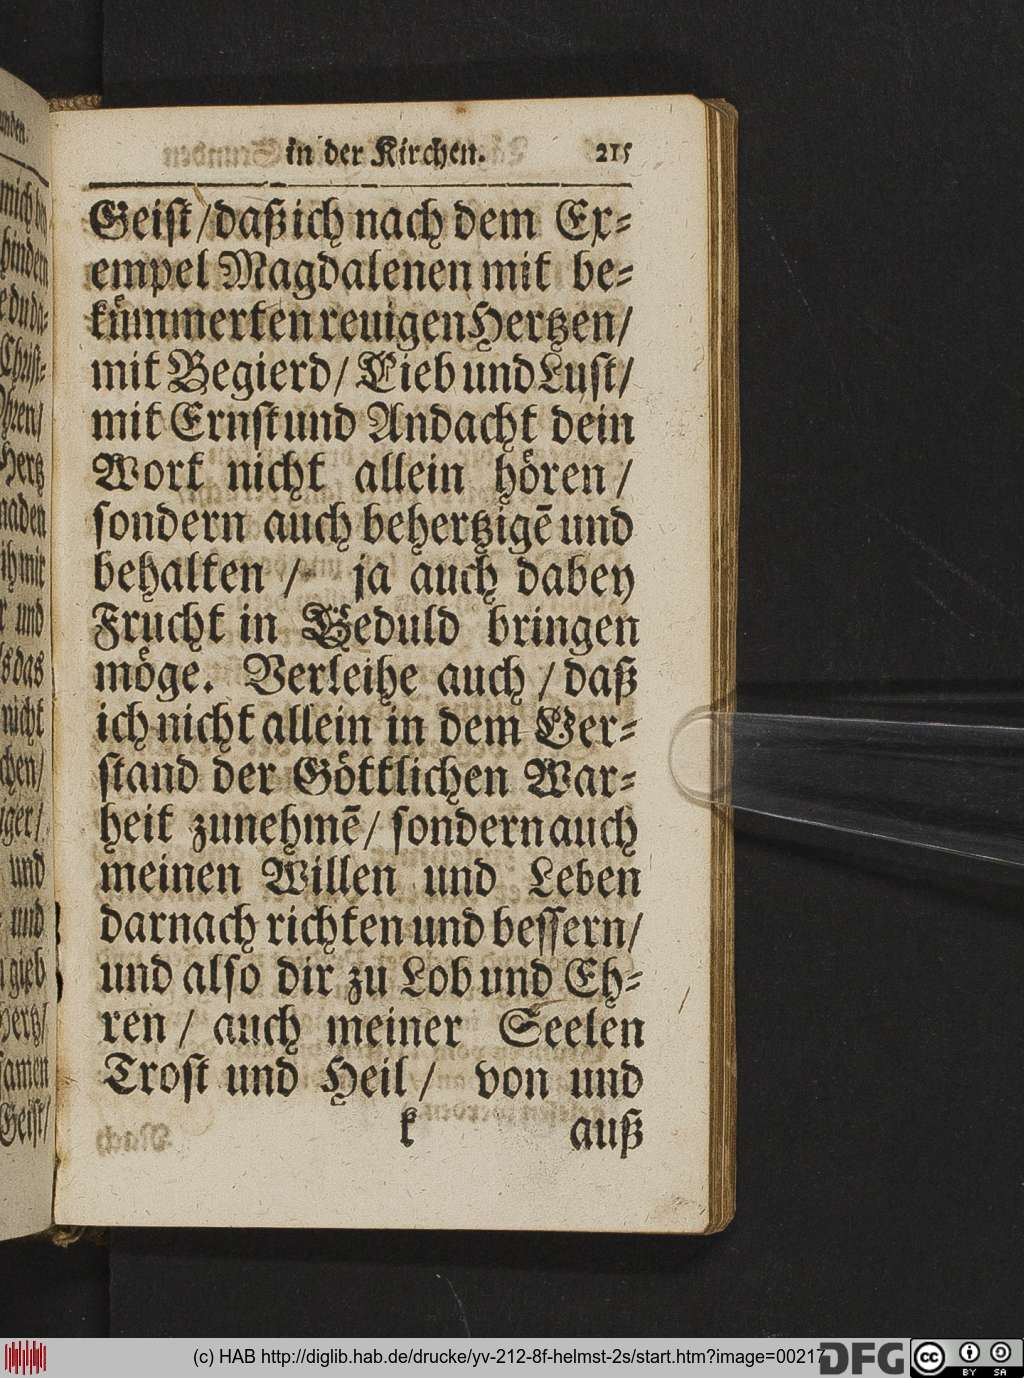 in der Kirchen. 215
Geist / daß ich nach dem Ex-
empel Magdalenen mit be-
kümmerten reuigen Hertzen /
mit Begierd / Lieb und Lust /
mit Ernst und Andacht dein
Wort nicht allein hören /
sondern auch behertzigẽ und
behalten / ja auch dabey
Frucht in Geduld bringen
möge. Verleihe auch / daß
ich nicht allein in dem Ver-
stand der Göttlichen War-
heit zunehmẽ / sondern auch
meinen Willen und Leben
darnach richten und bessern /
und also dir zu Lob und Eh-
ren / auch meiner Seelen
Trost und Heil / von und
k auß
unden.
mich
hindern
Christ-
Hertz
naden
mir
und
das
nicht
und
und
gieb
Hertz /
Geist /
(c) HAB http://diglib.hab.de/drucke/yv-212-8f-helmst-2s/start.htm?image=00217
DFG
cc BY SA